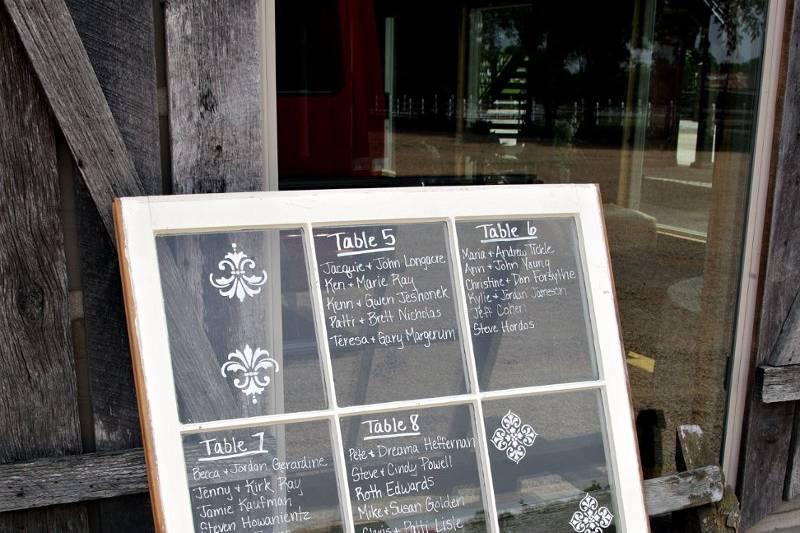 Table 5
Jacquie + John Longacre
Ken + Marie Ray
Kenn + Gwen Jeshonek
Patti + Brett Nicholas
Teresa + Gary Margerum
Table 6
Maria + Andrew Tickle
Ann + John Young
Christine + Don Forsythe
Kylie + Jordan Jameson
Jeff Cohen
Steve Hordos
Table 7
Becca + Jordan Gerardine
Jenny + Kirk Ray
Jamie Kaufman
Steven Howanientz
Table 8
Pete + Dreama Heffernan
Steve + Cindy Powell
Roth Edwards
Mike + Susan Golden
Chris + Patti Lisle